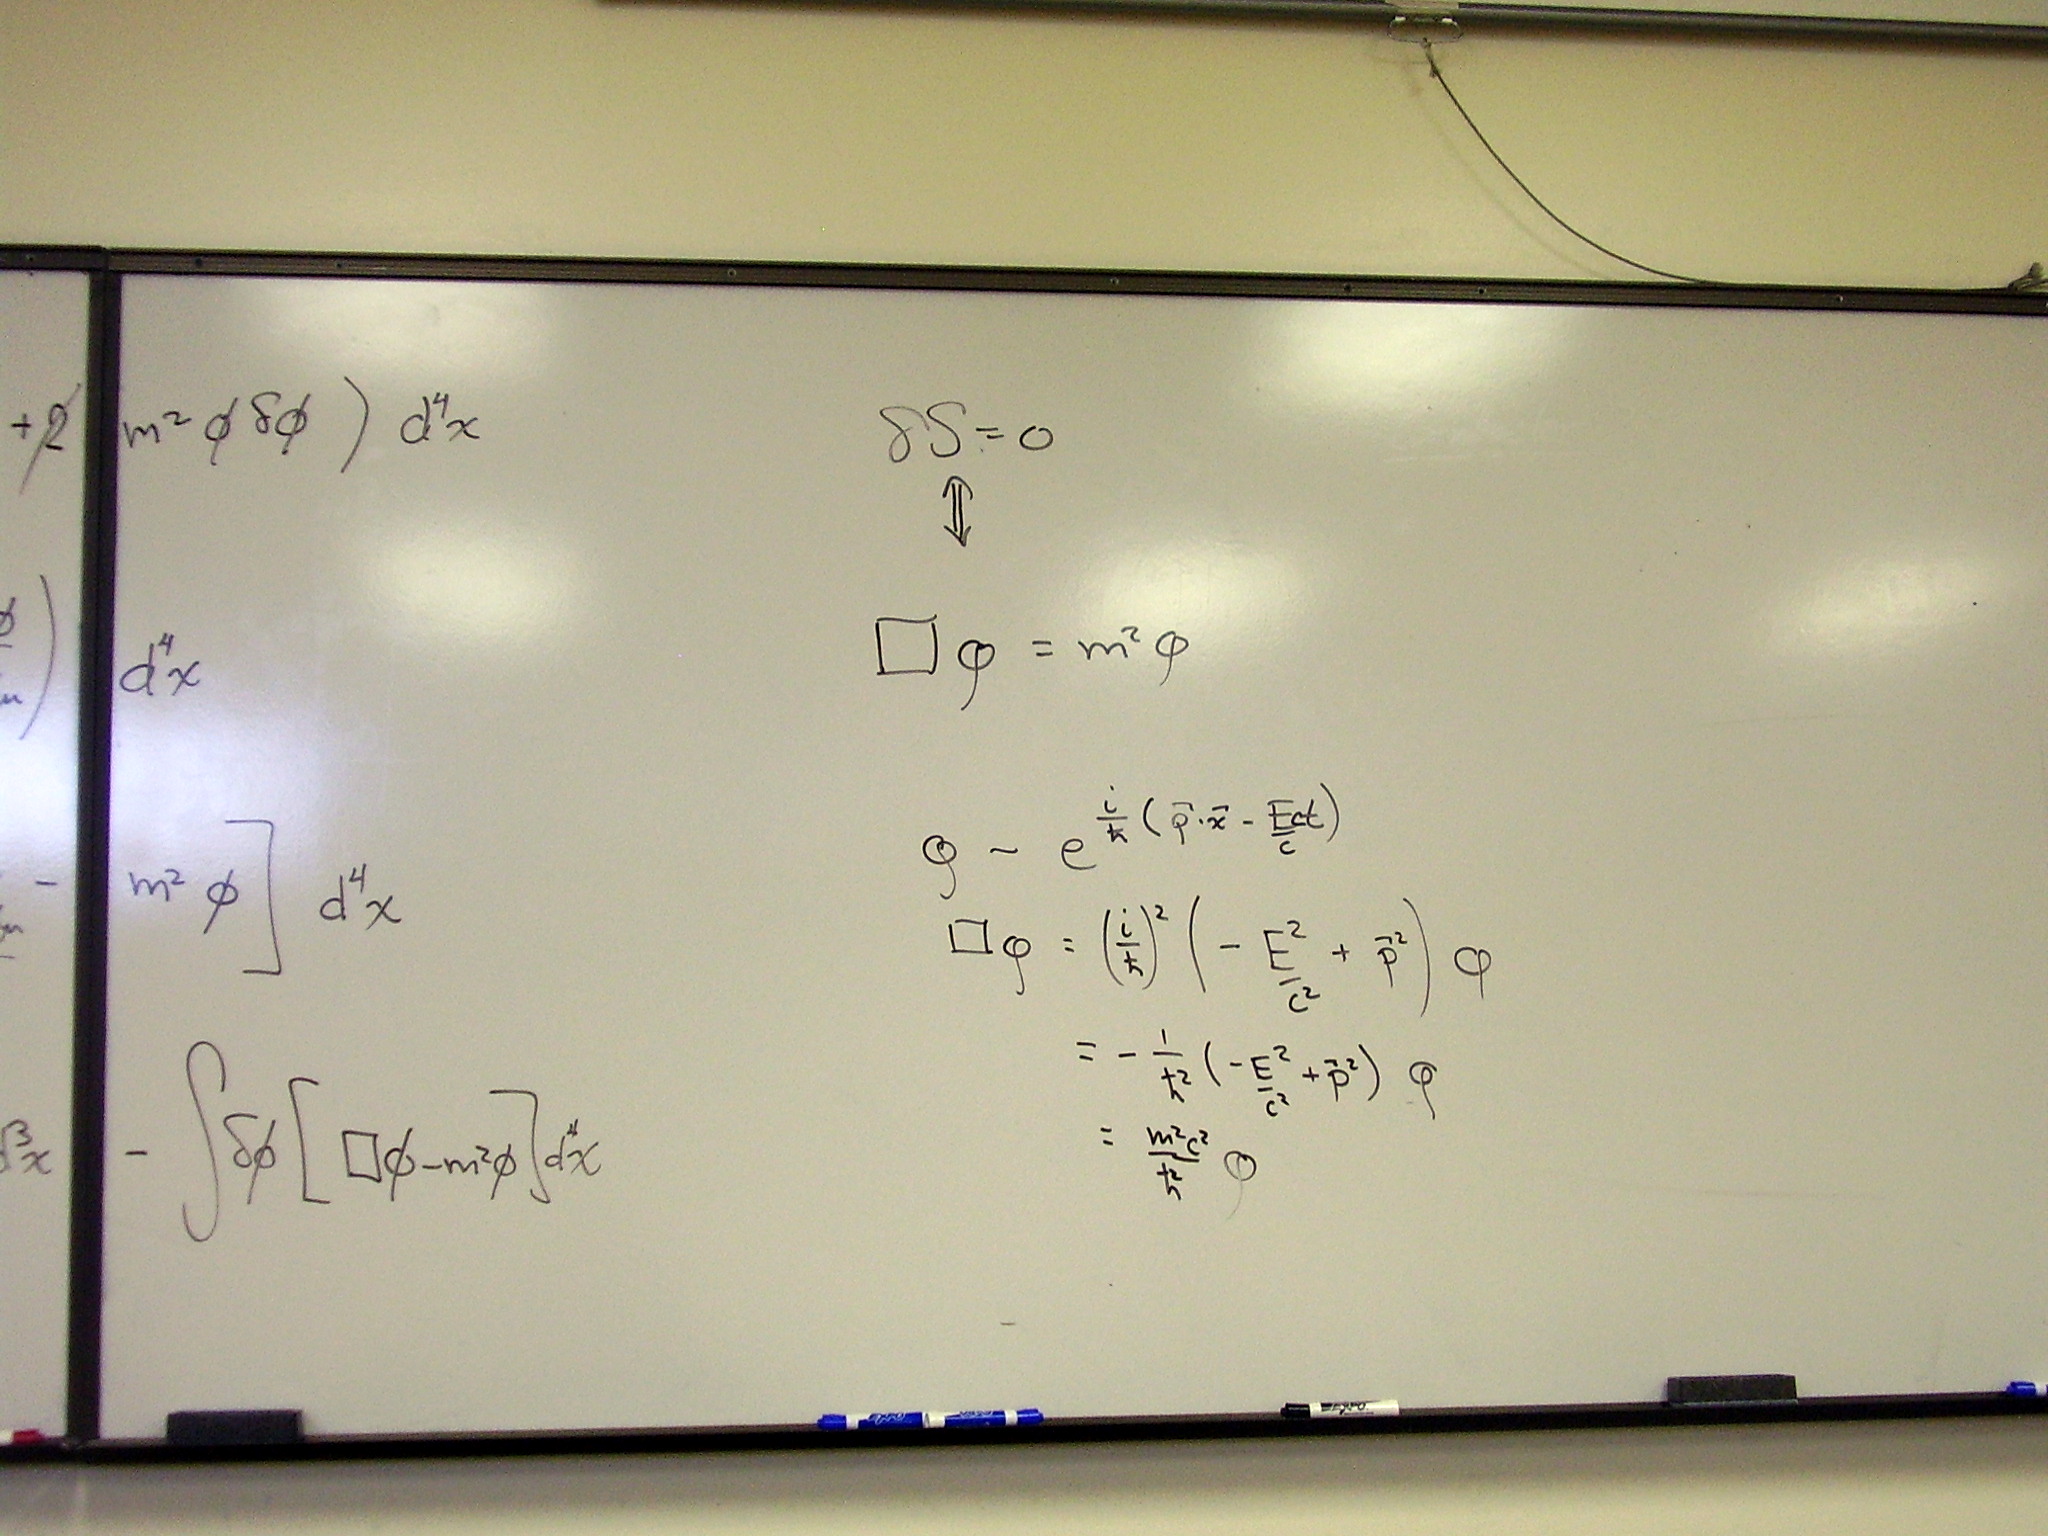 +2 m² φ δφ ) d⁴x
φ ) d⁴x
− m² φ ] d⁴x
d³x − ∫ δφ [ □φ − m²φ ] d⁴x
δS = 0
⇕
□ φ = m² φ
φ ~ e^{i/ħ ( p⃗·x⃗ − E/c ct )}
□ φ = (i/ħ)² ( − E²/c² + p⃗² ) φ
= − 1/ħ² ( − E²/c² + p⃗² ) φ
= m²c²/ħ² φ
EXPO